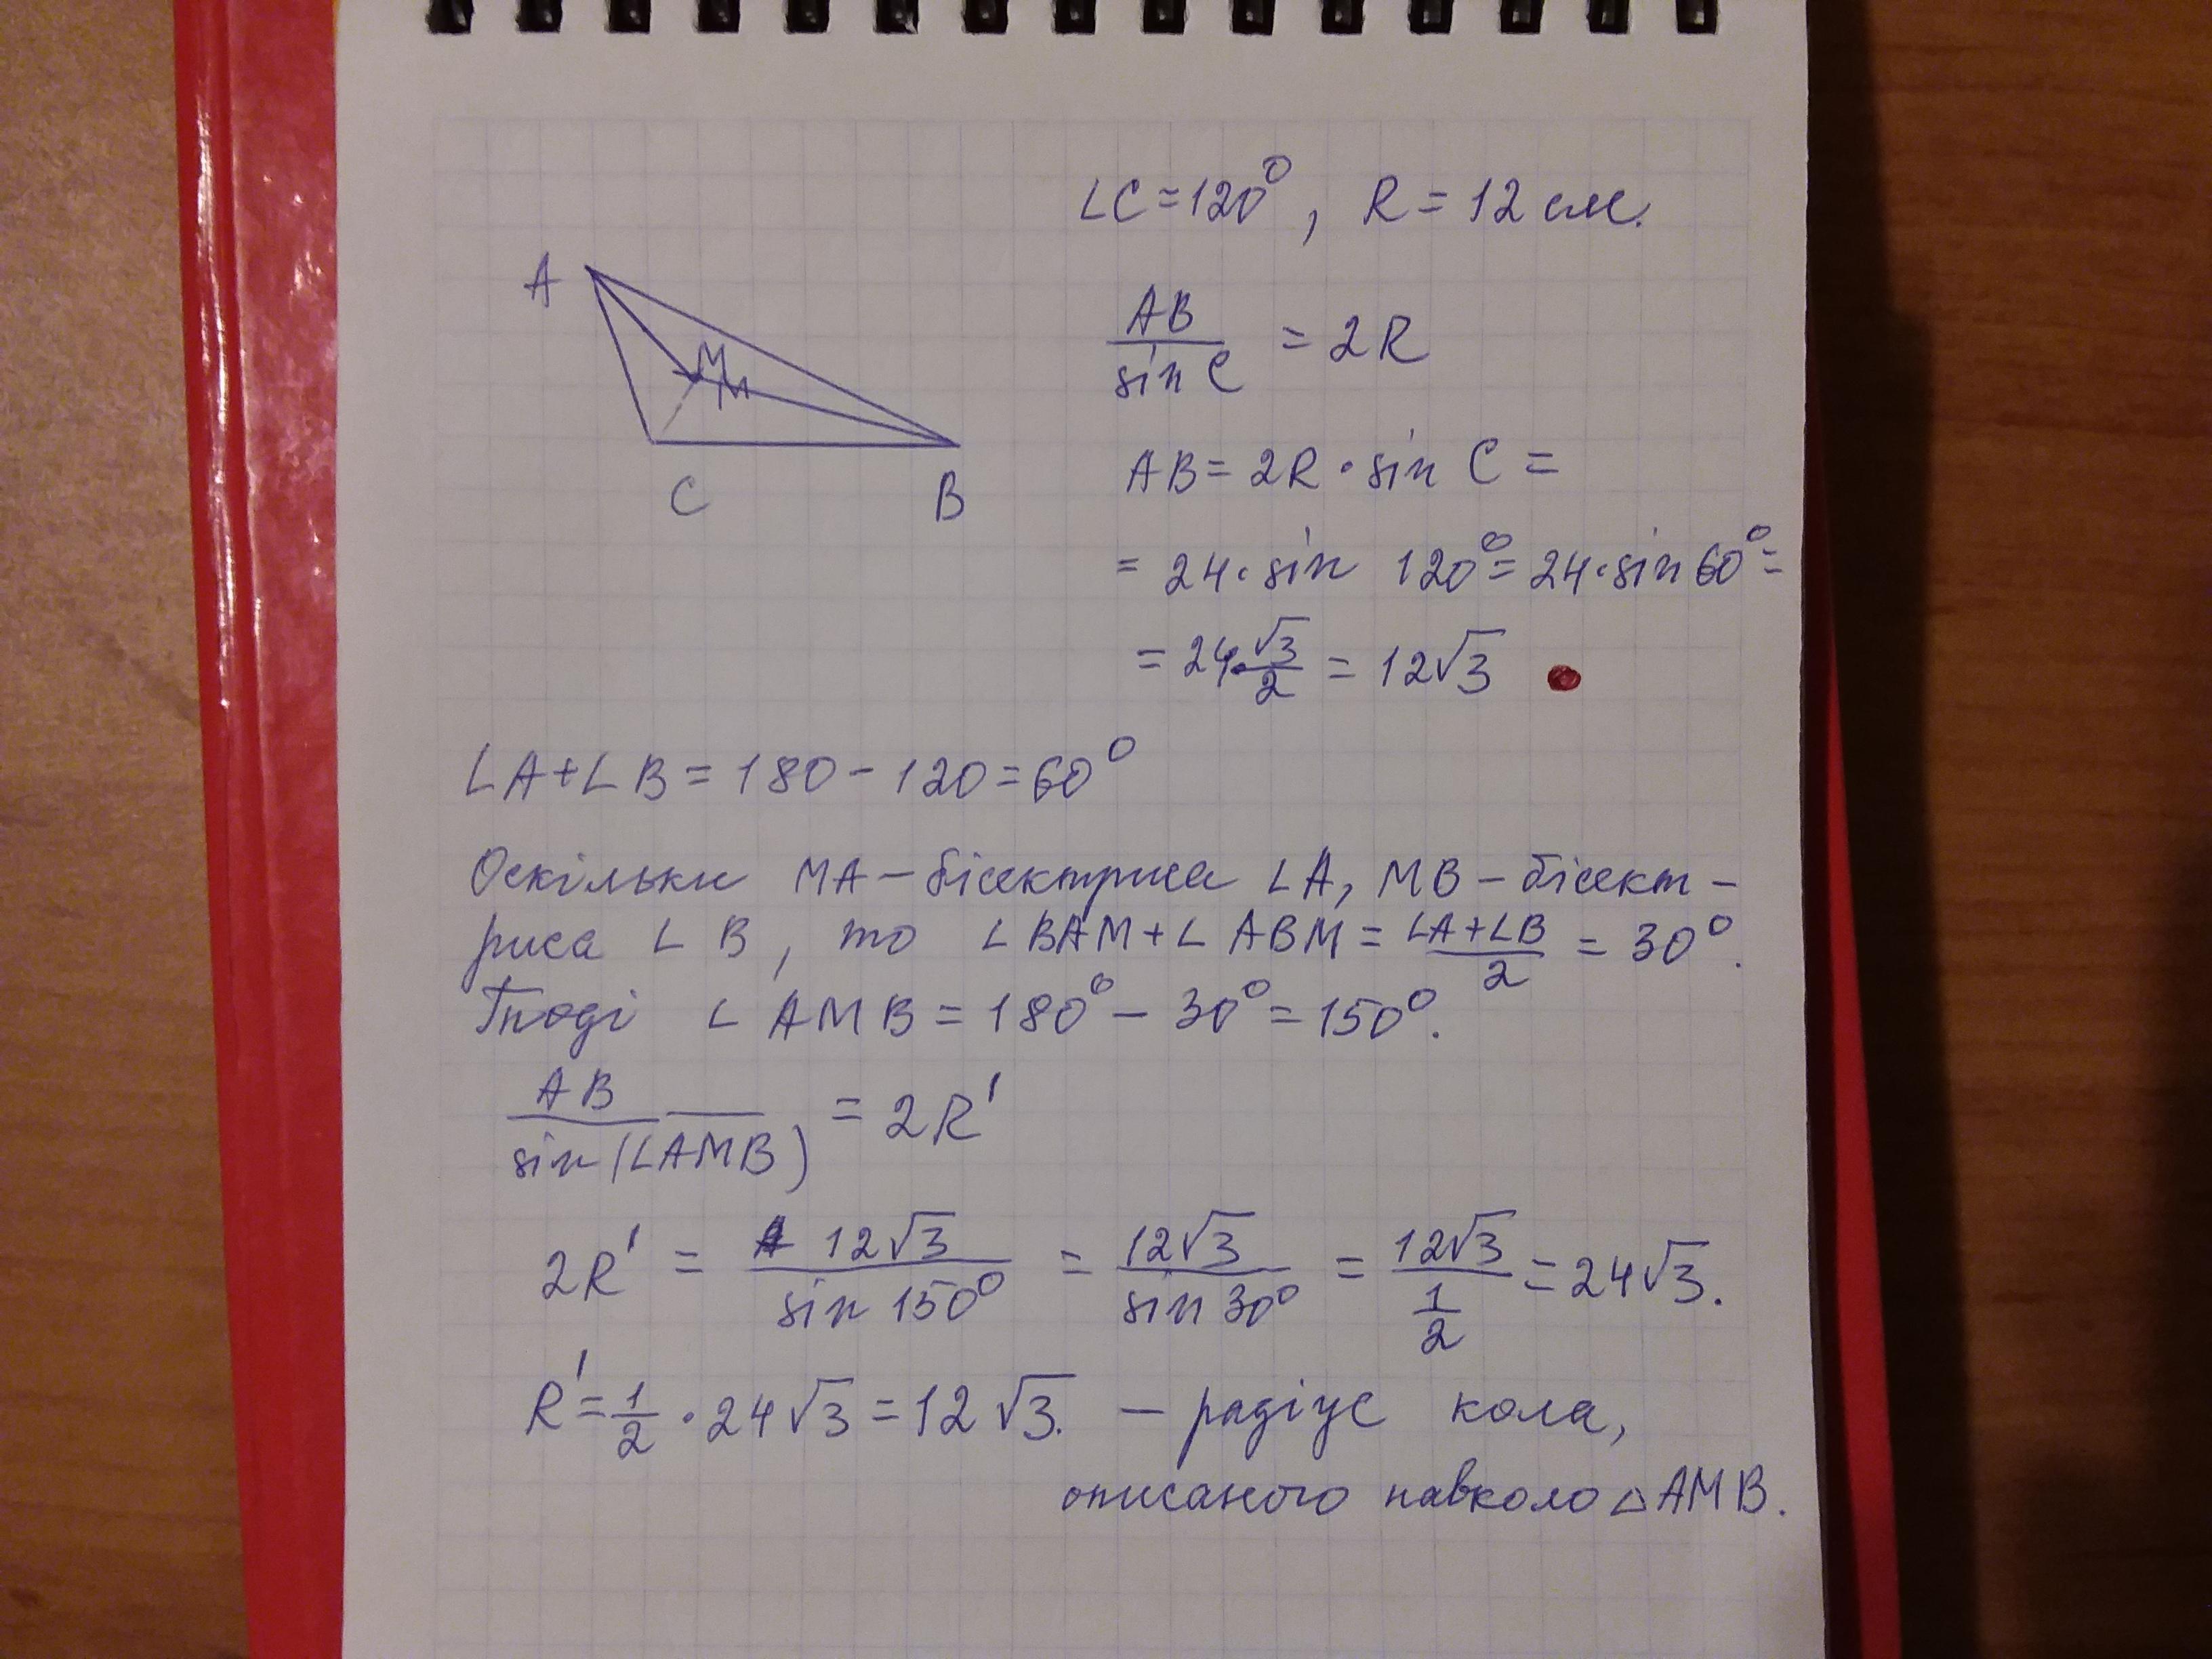 ∠C=120°, R=12 см.
A
M
M
C
B
AB/sin C = 2R
AB=2R·sin C=
= 24·sin 120°=24·sin60°=
=24·√3/2 = 12√3
∠A+∠B=180-120=60°
Оскільки MA-бісектриса ∠A, MB-бісект-
риса ∠B, то ∠BAM+∠ABM=(∠A+∠B)/2=30°.
Тоді ∠AMB=180°-30°=150°.
AB/sin(∠AMB) = 2R'
2R' = 12√3/sin 150° = 12√3/sin 30° = 12√3/(1/2) = 24√3.
R'=1/2·24√3=12√3. - радіус кола,
описаного навколо △AMB.